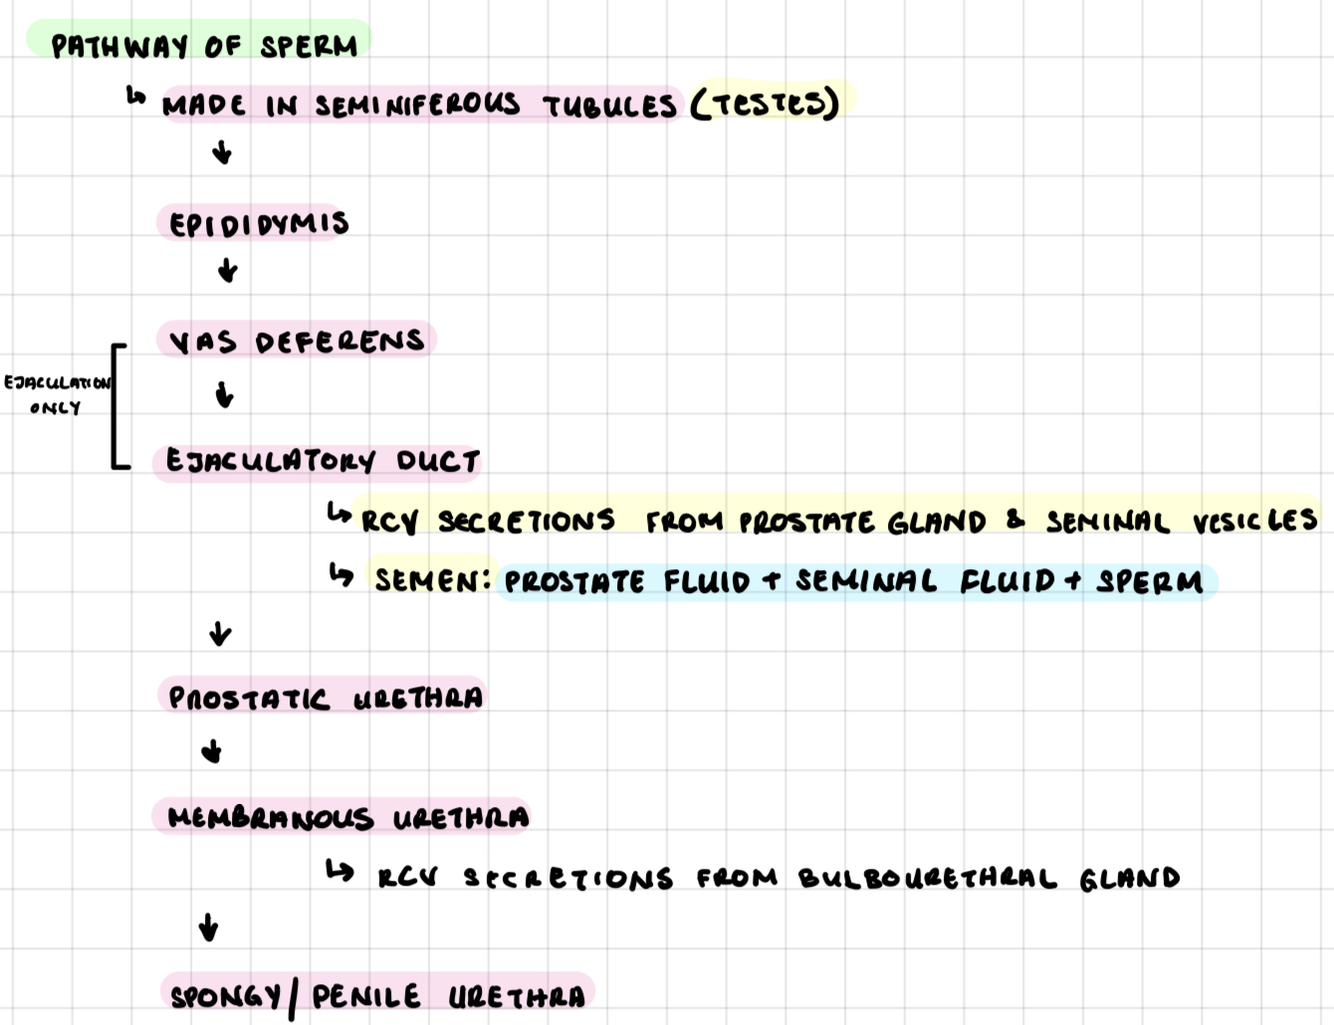 PATHWAY OF SPERM
↳ MADE IN SEMINIFEROUS TUBULES (TESTES)
↓
EPIDIDYMIS
↓
VAS DEFERENS
EJACULATION
ONLY
↓
EJACULATORY DUCT
↳ RCV SECRETIONS FROM PROSTATE GLAND & SEMINAL VESICLES
↳ SEMEN: PROSTATE FLUID + SEMINAL FLUID + SPERM
↓
PROSTATIC URETHRA
↓
MEMBRANOUS URETHRA
↳ RCV SECRETIONS FROM BULBOURETHRAL GLAND
↓
SPONGY/PENILE URETHRA